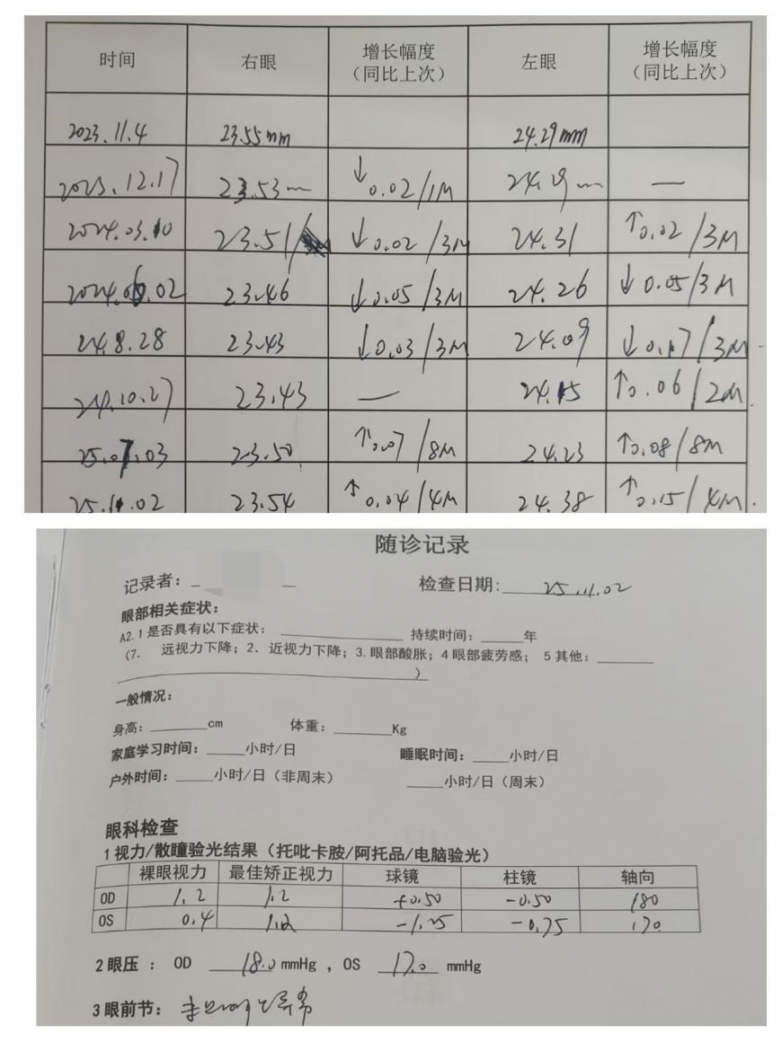 时间 右眼 增长幅度（同比上次） 左眼 增长幅度（同比上次）
2023.11.4 23.55mm 24.29mm
2023.12.17 23.53mm ↓0.02/1M 24.29mm —
2024.03.10 23.51/ ↓0.02/3M 24.31 ↑0.02/3M
2024.06.02 23.46 ↓0.05/3M 24.26 ↓0.05/3M
24.8.28 23.43 ↓0.03/3M 24.09 ↓0.17/3M
24.10.27 23.43 — 24.15 ↑0.06/2M
25.07.03 23.50 ↑0.07/8M 24.23 ↑0.08/8M
25.11.02 23.54 ↑0.04/4M 24.38 ↑0.15/4M
随诊记录
记录者： 检查日期: 25.11.02
眼部相关症状：
A2.1是否具有以下症状： 持续时间：____年
(7. 远视力下降；2. 近视力下降；3.眼部酸胀；4眼部疲劳感； 5其他：
)
一般情况：
身高：____cm 体重：____Kg
家庭学习时间：____小时/日 睡眠时间：____小时/日
户外时间：____小时/日（非周末） ____小时/日（周末）
眼科检查
1视力/散瞳验光结果（托吡卡胺/阿托品/电脑验光）
裸眼视力 最佳矫正视力 球镜 柱镜 轴向
OD 1.2 1.2 +0.50 -0.50 180
OS 0.4 1.2 -1.25 -0.75 170
2眼压 ： OD 18.0 mmHg , OS 17.0 mmHg
3眼前节：